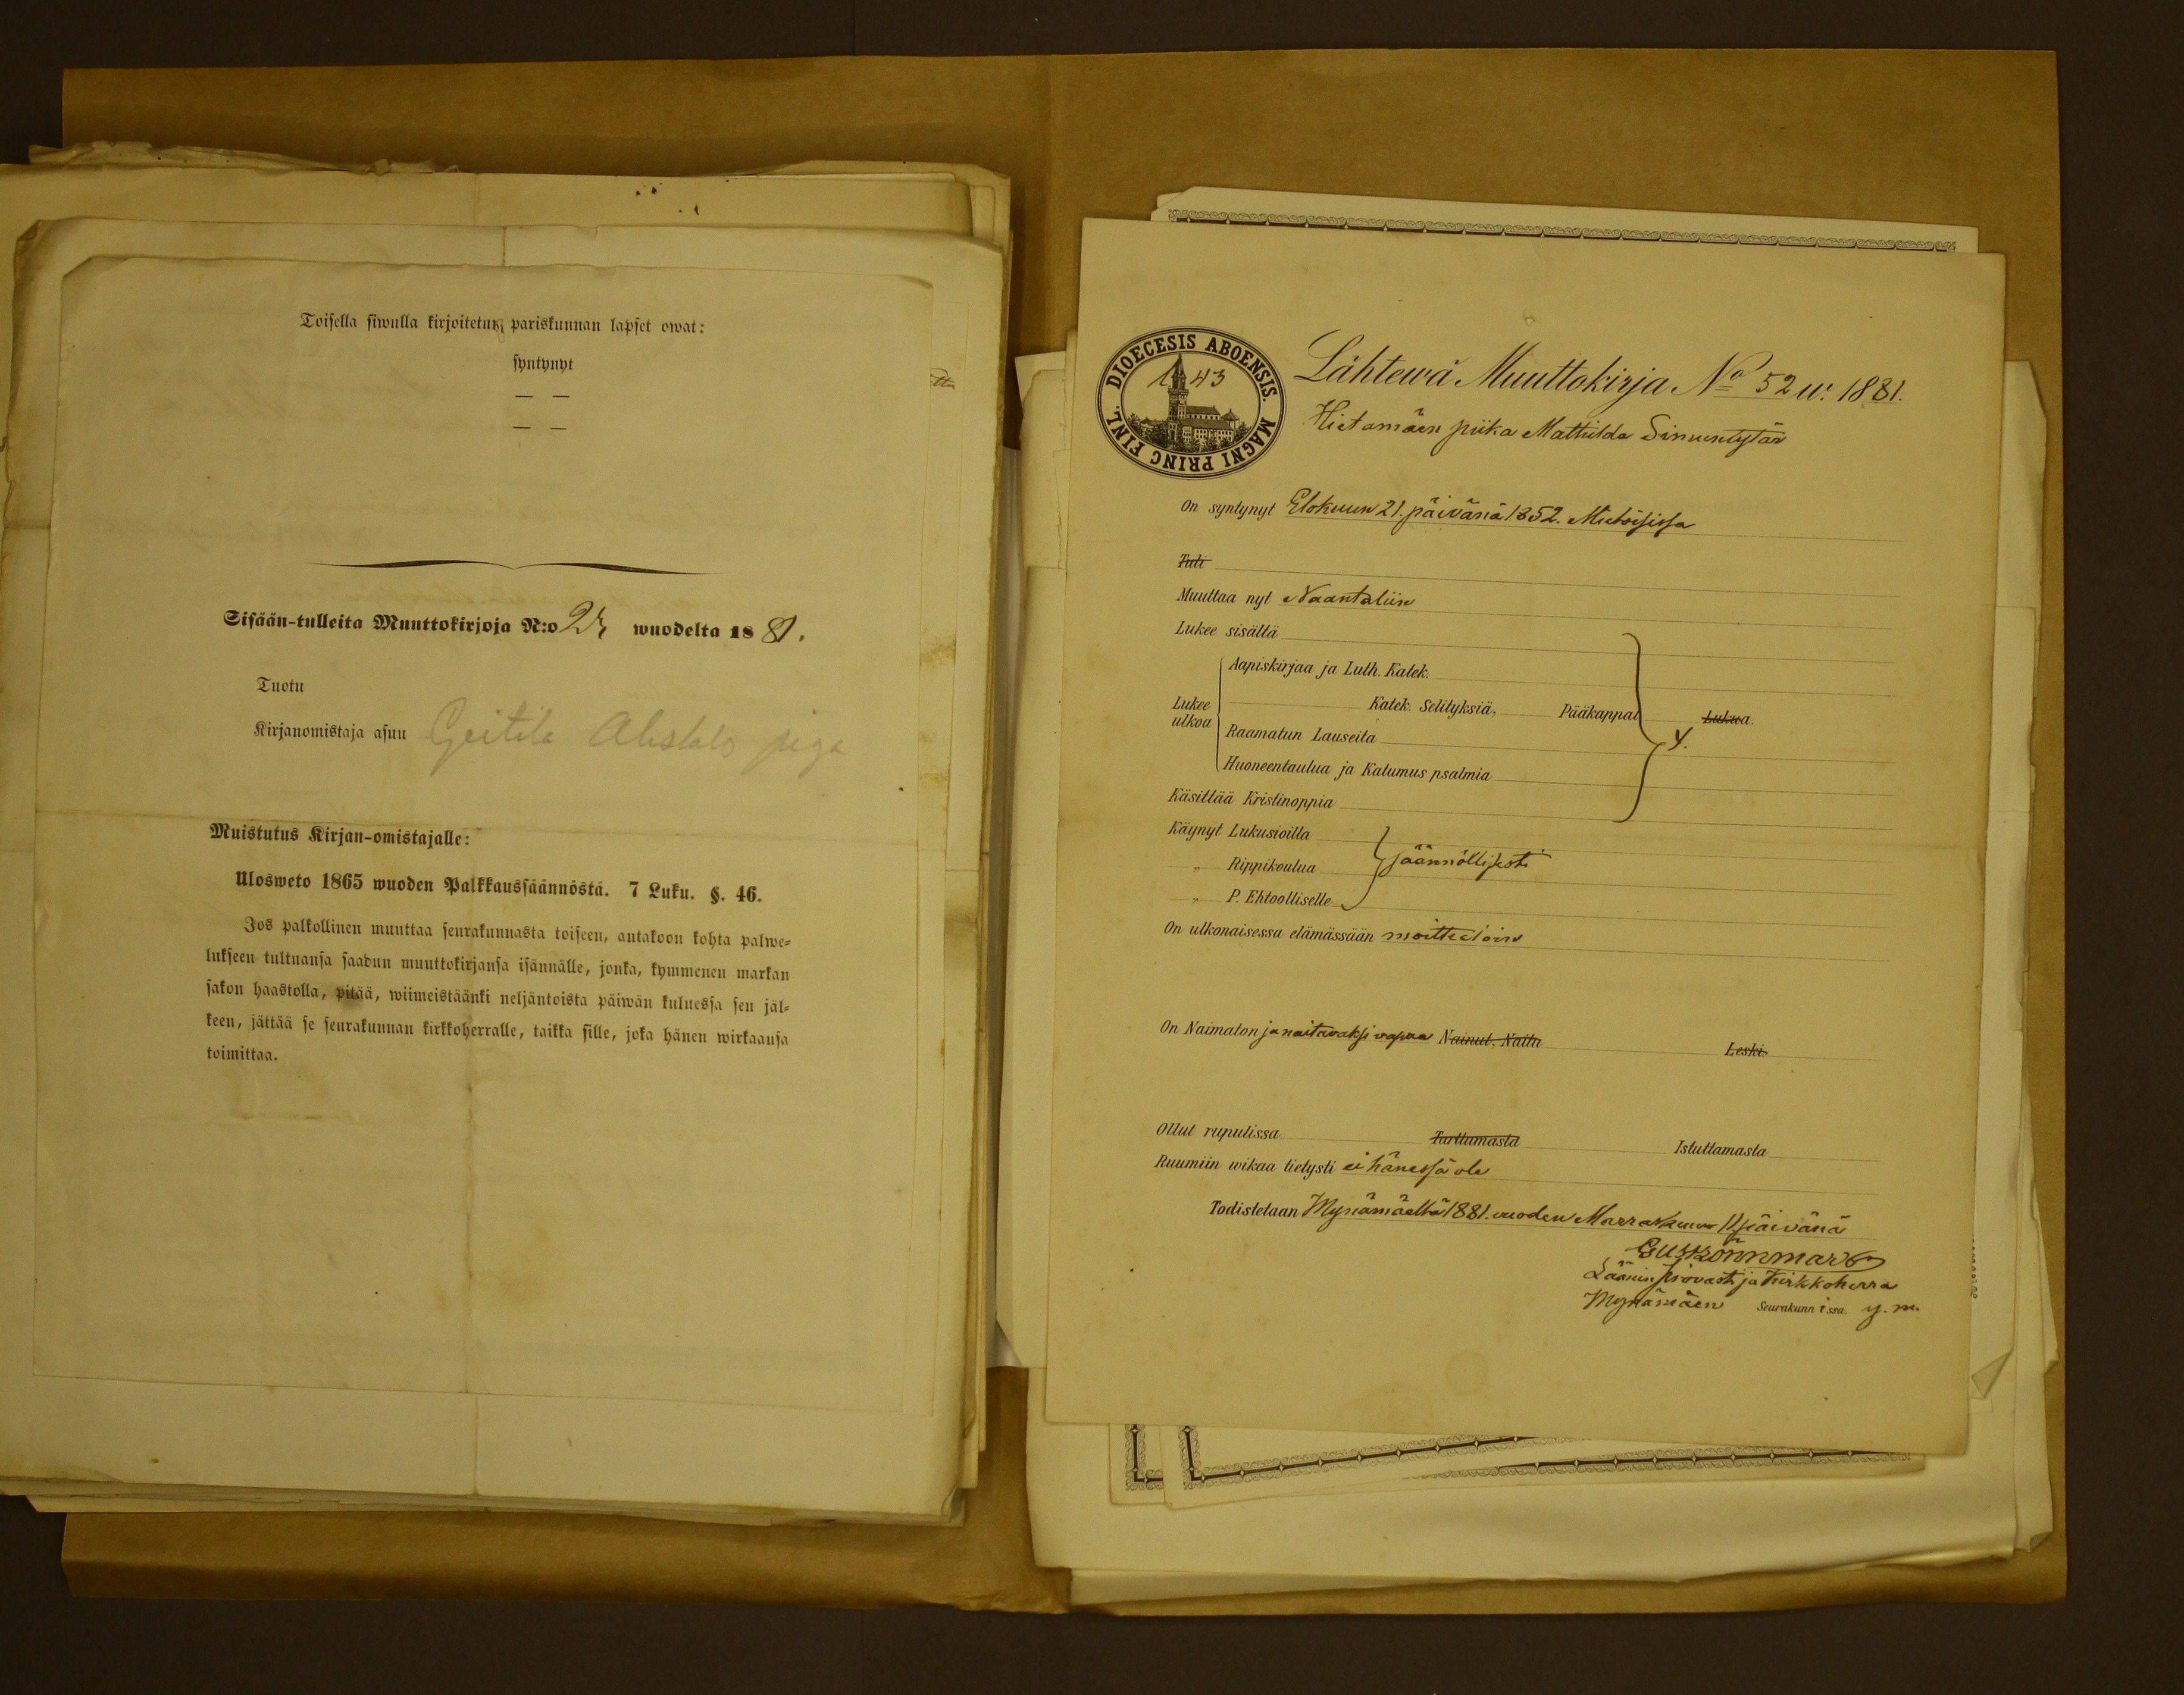 Toisella siwulla kirjoitetun pariskunnan lapset owat:
syntynyt
— —
— —
Sisään-tulleita Muuttokirjoja N:o wuodelta 1881.
Tuotu
Kirjanomistaja asuu Geitila piga
Muistutus Kirjan-omistajalle:
Ulosweto 1865 wuoden Palkkaussäännöstä. 7 Luku. §. 46.
Jos palkollinen muuttaa seurakunnasta toiseen, antakoon kohta palwe=
lukseen tultuansa saadun muuttokirjansa isännälle, jonka, kymmenen markan
sakon haastolla, pitää, wiimeistäänki neljäntoista päiwän kuluessa sen jäl=
keen, jättää se seurakunnan kirkkoherralle, taikka sille, joka hänen wirkaansa
toimittaa.
DIOECESIS ABOENSIS. MAGNI PRINC FINL.
43
Lähtewä Muuttokirja No 52 w. 1881.
Hietamäen piika Mathilda Simuntytär
On syntynyt Elokuun 21. päivänä 1852. Mietoisissa
Tuli
Muuttaa nyt Naantaliin
Lukee sisältä
Aapiskirjaa ja Luth. Katek.
Lukee ulkoa Katek. Selityksiä, Pääkappal Lukua.
Raamatun Lauseita
4.
Huoneentaulua ja Katumus psalmia
Käsittää Kristinoppia
Käynyt Lukusioilla
„ Rippikoulua säännöllisesti
„ P. Ehtoolliselle
On ulkonaisessa elämässään moittectoin
On Naimaton ja naitavaksi vapaa Nainut. Naitu Leski
Ollut rupulissa Tarttumasta Istuttamasta
Ruumiin wikaa tietysti ei hänessä ole
Todistetaan Mynämäeltä 1881. vuoden Marraskuun 11 päivänä
Läänin provasti ja Kirkkoherra
Mynämäen Seurakunnissa. y. m.